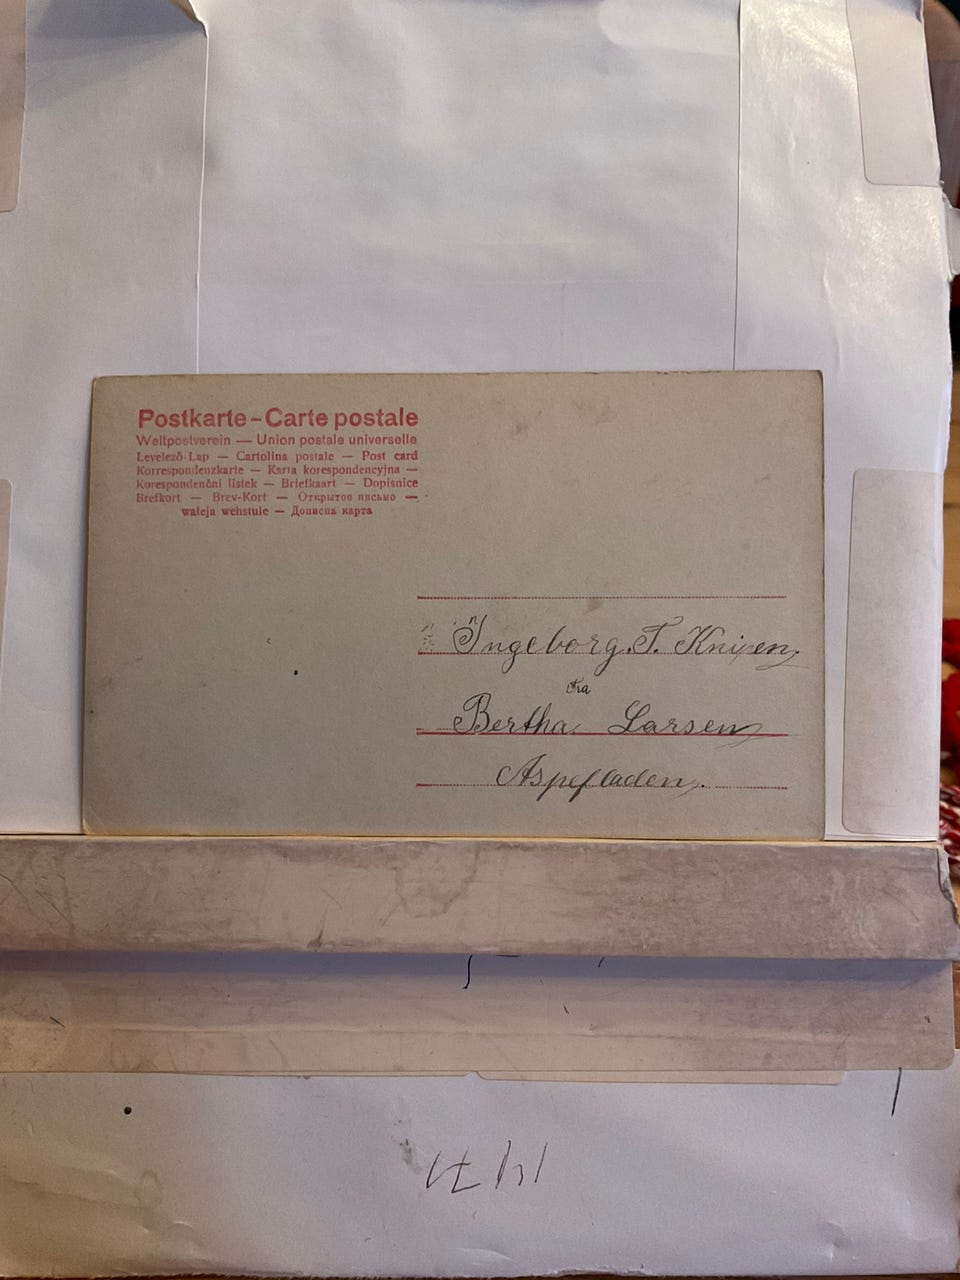 Postkarte – Carte postale
Weltpostverein — Union postale universelle
Levelező-Lap — Cartolina postale — Post card
Korrespondenzkarte — Karta korespondencyjna —
Korespondenční lístek — Briefkaart — Dopisnice
Brefkort — Brev-Kort — Открытое письмо —
waleja wehstule — Дописна карта
Ingeborg. T. Knipen,
fra
Bertha Larsen,
Aspefladen,.